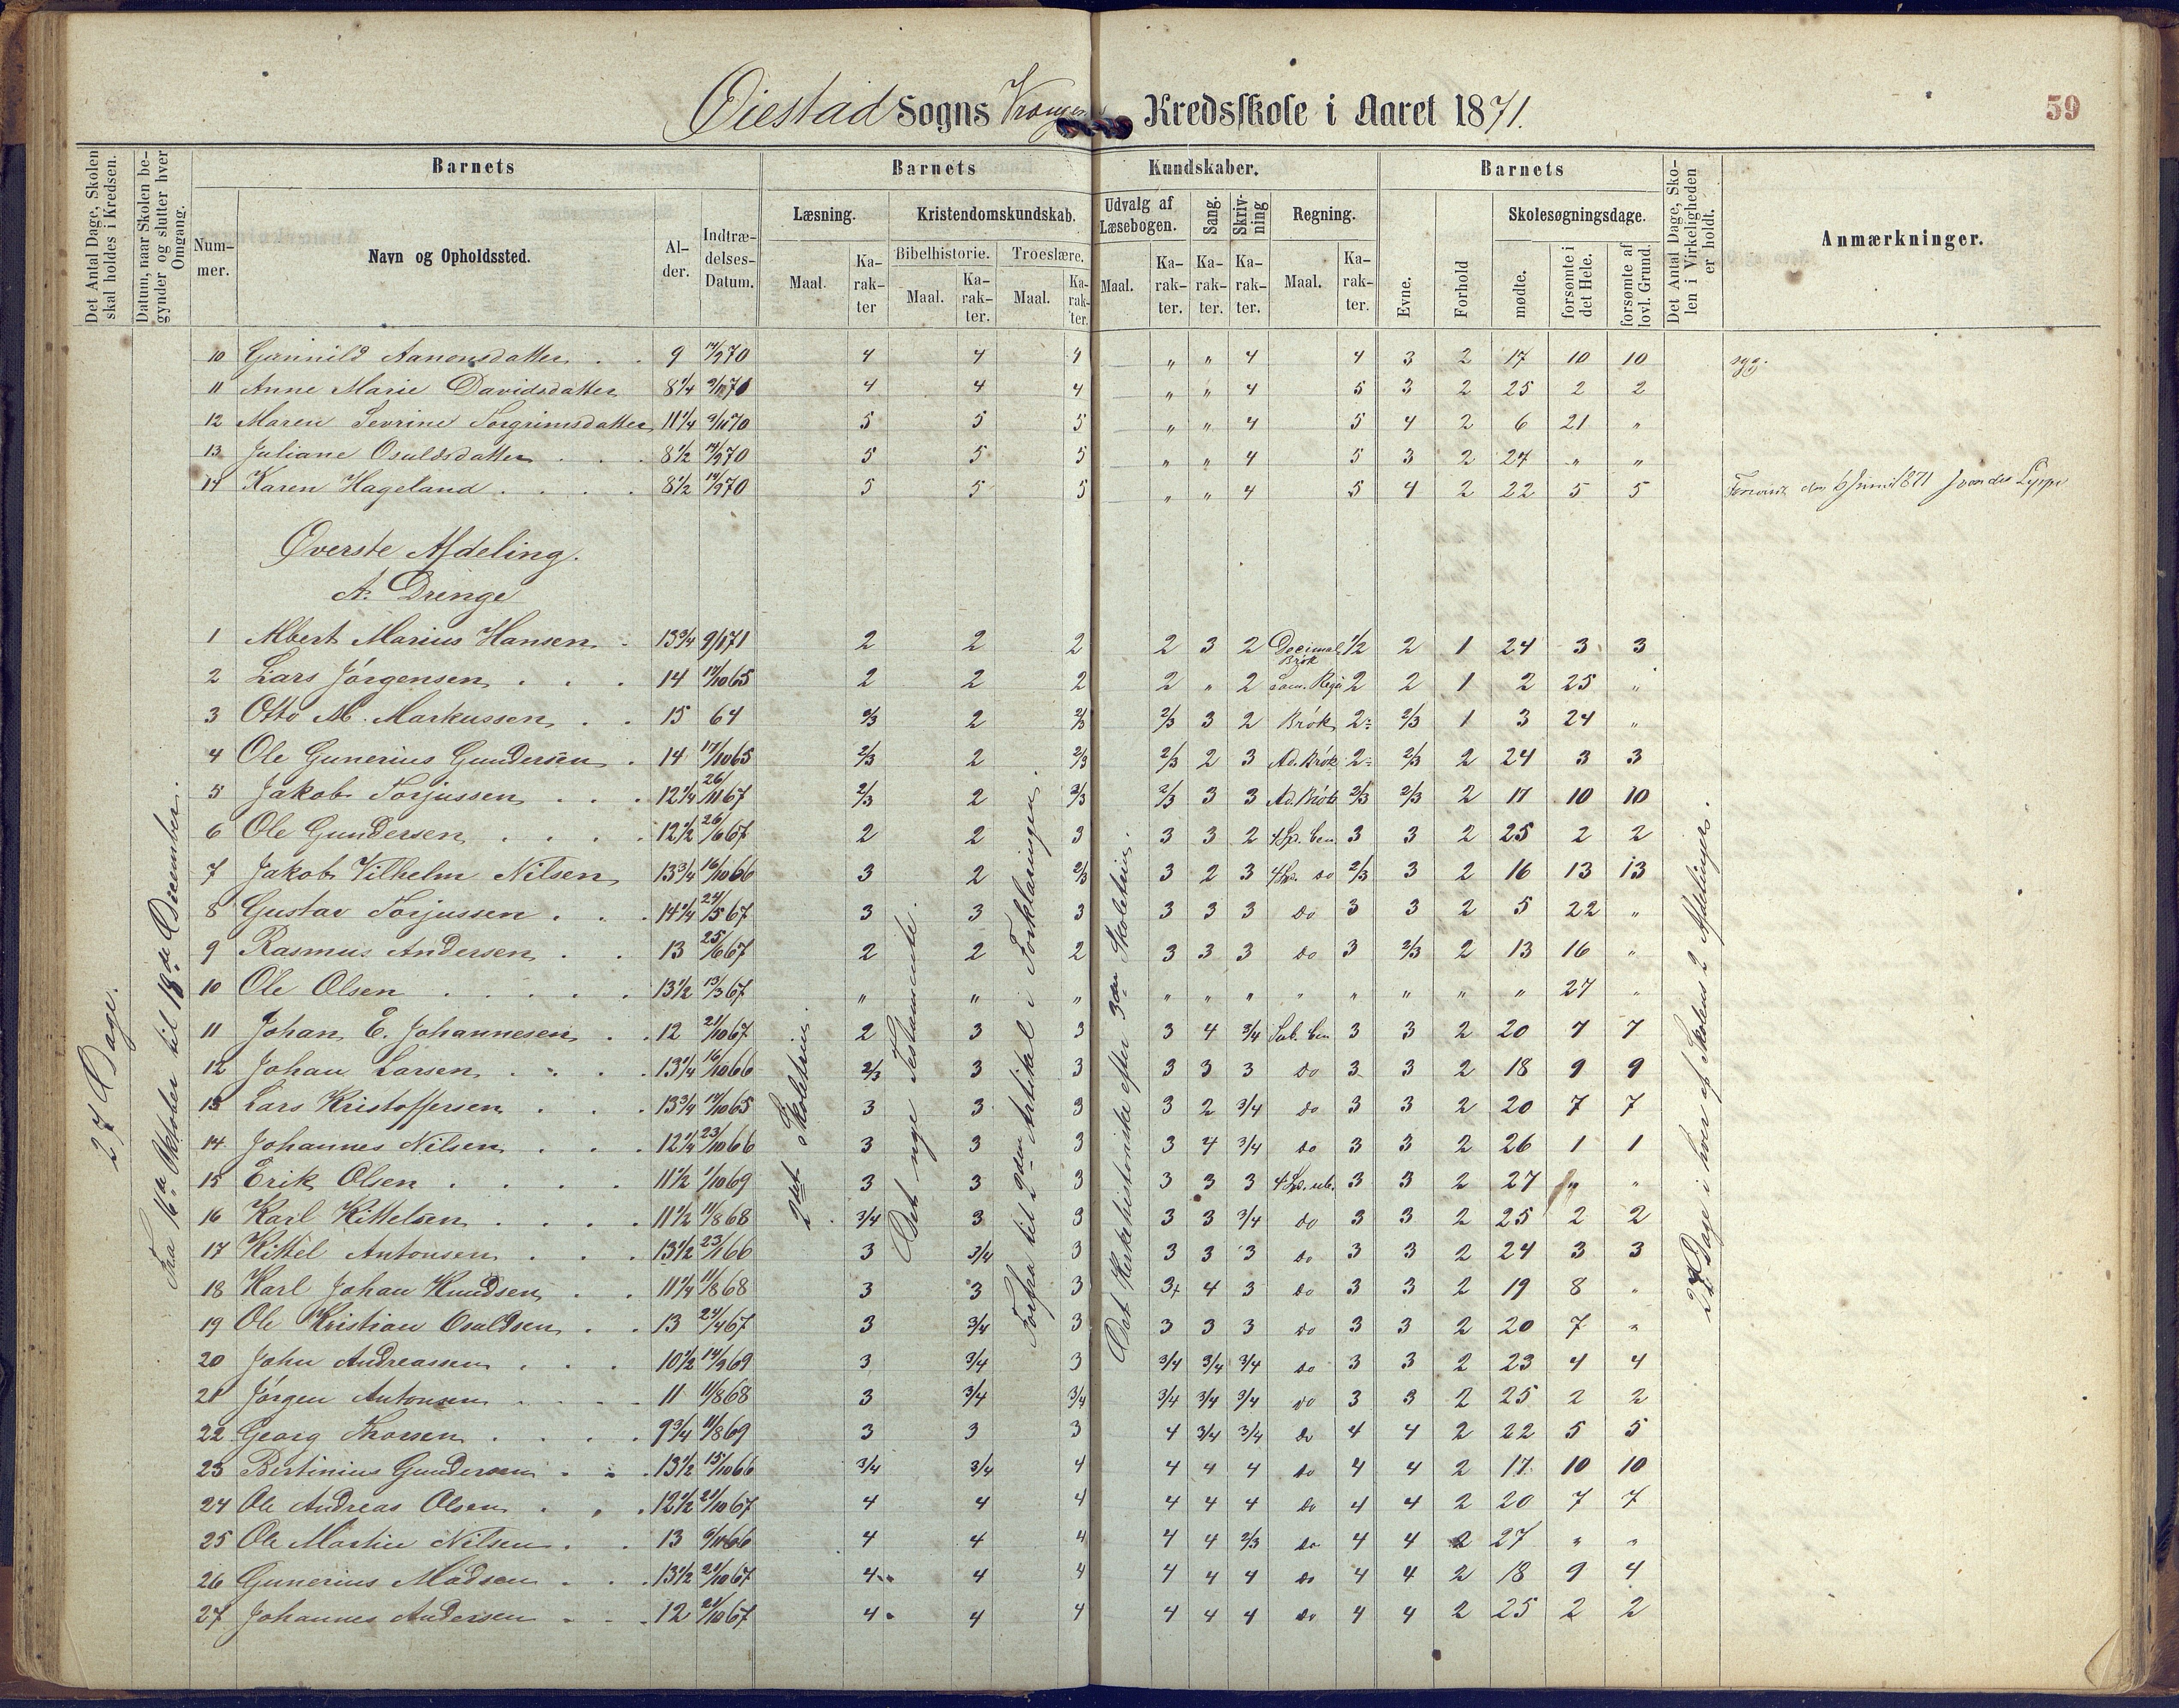 Øiestad Sogns Kredsskole i Aaret 1871.
59
Det Antal Dage, Skolen skal holdes i Kredsen.
Datum, naar Skolen begynder og slutter hver Omgang.
Barnets
Barnets
Kundskaber.
Barnets
Det Antal Dage, Skolen i Virkeligheden er holdt.
Anmærkninger.
Nummer.
Navn og Opholdssted.
Alder.
Indtrædelses-Datum.
Læsning.
Kristendomskundskab.
Udvalg af Læsebogen.
Sang.
Skrivning
Regning.
Evne.
Forhold
Skolesøgningsdage.
Bibelhistorie.
Troeslære.
Maal.
Karakter
Maal.
Karakter.
Maal.
Karakter.
Maal.
Karakter.
Karakter.
Karakter.
Maal.
Karakter.
mødte.
forsømte i det Hele.
forsømte af lovl. Grund.
10 Gunnild Aanonsdatter 9 14/9 70 4 4 4 " " 4 4 3 2 17 10 10 syg.
11 Anne Marie Davidsdatter 8 1/4 70 4 4 4 " " 4 5 3 2 25 2 2
12 Maren Sevrine Torgrimsdatter 11 1/4 70 5 5 5 " " 4 5 4 2 6 21 "
13 Juliane Osuldsdatter 8 1/2 14/9 70 5 5 5 " " 4 5 3 2 27 " "
14 Karen Hageland 8 1/2 14/9 70 5 5 5 " " 4 5 4 2 22 5 5 den 6 Juni 1871
Øverste Afdeling.
A. Drenge
1 Albert Marius Hansen 13 3/4 9/1 71 2 2 2 2 3 2 Decimal Brøk 1/2 2 1 24 3 3
2 Lars Jørgensen 14 17/10 65 2 2 2 2 " 2 2 2 1 2 25 "
3 Otto M. Markussen 15 64 2/3 2 2/3 2/3 3 2 Brøk 2- 2/3 1 3 24 "
4 Ole Gunerius Gundersen 14 17/10 65 2/3 2 2/3 2/3 2 3 Ad. Brøk 2- 2/3 2 24 3 3
5 Jakob Torjussen 12 1/4 26/11 67 2/3 2 2/3 2/3 3 3 Ad. Brøk 2/3 2/3 2 17 10 10
6 Ole Gundersen 12 1/2 26/6 67 2 2 3 3 3 2 4 Sp. ben 3 3 2 25 2 2
7 Jakob Vilhelm Nilsen 13 3/4 16/10 66 3 2 2/3 3 2 3 4 Sp. do 2/3 3 2 16 13 13
8 Gustav Torjussen 14 1/4 24/5 67 3 3 3 3 3 3 do 3 3 2 5 22 "
9 Rasmus Andersen 13 25/6 67 2 2 2 3 3 3 do 3 2/3 2 13 16 "
10 Ole Olsen 13 1/2 13/3 67 " " " " " " " " " " " 27 "
11 Johan E. Johannesen 12 21/10 67 2 3 3 3 4 3/4 Sub. ben 3 3 2 20 7 7
12 Johan Larsen 13 1/4 16/10 66 2/3 3 3 3 3 3 do 3 3 2 18 9 9
13 Lars Kristoffersen 13 3/4 17/10 65 3 3 3 3 2 3/4 do 3 3 2 20 7 7
14 Johannes Nilsen 12 1/4 23/10 66 3 3 3 3 4 3/4 do 3 3 2 26 1 1
15 Erik Olsen 11 1/2 1/10 69 3 3 3 3 3 3 4 Sp. ub. 3 3 2 27 " "
16 Karl Kittelsen 11 1/2 11/8 68 3/4 3 3 3 3 3/4 do 3 3 2 25 2 2
17 Kittel Antonsen 13 1/2 23/1 66 3 3/4 3 3 3 3 do 3 3 2 24 3 3
18 Karl Johan Knudsen 11 1/4 11/8 68 3 3 3 3+ 4 3 do 3 3 2 19 8 "
19 Ole Kristian Osaldsen 13 24/4 67 3 3/4 3 3 3 3 do 3 3 2 20 7 "
20 John Andreassen 10 1/2 14/9 69 3 3/4 3 3/4 3/4 3/4 do 3 3 2 23 4 4
21 Jørgen Antonsen 11 11/8 68 3 3/4 3/4 3/4 3/4 3/4 do 3 3 2 25 2 2
22 Georg Thorsen 9 3/4 11/8 69 3 3 3 4 3/4 3/4 do 4 4 2 22 5 5
23 Bertinius Gundersen 13 1/2 15/10 66 3/4 3/4 4 4 4 4 do 4 4 2 17 10 10
24 Ole Andreas Olsen 12 1/2 21/10 67 4 4 4 4 4 4 do 4 4 2 20 7 7
25 Ole Martin Nilsen 13 66 4 4 4 4 4 2/3 do 4 4 2 27 " "
26 Gunerius Madsen 13 1/2 21/10 67 4 4 4 4 4 4 do 4 4 2 18 9 4
27 Johannes Andersen 12 21/10 67 4 4 4 4 4 4 do 4 4 2 25 2 2
27 Dage.
Fra 16de Oktober til 18de December.
2det Skoletrin.
Det nye Testamente.
Forfra til 2den Artikel i Forklaringen.
Det Kirkehistoriske efter 3die Skoletrin.
27 Dage i hver af Skolens 2 Afdelinger.